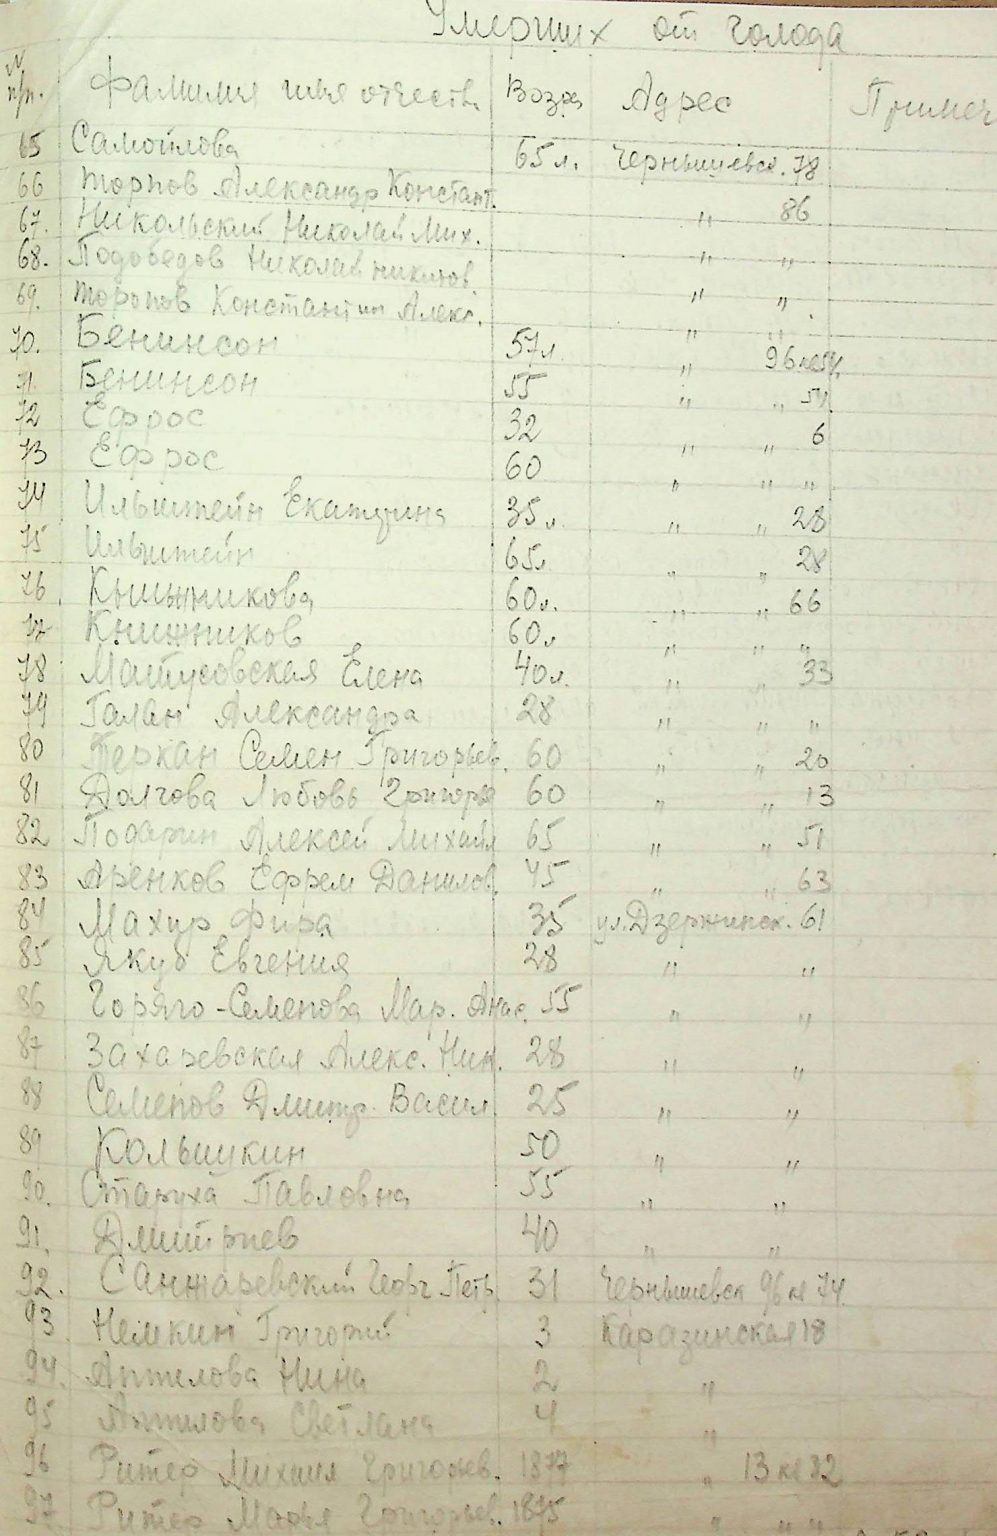 Умерших от голода
N п/п. Фамилия имя отчеств Возр Адрес Примеч
65 Самойлова 65 л. Чернышевск. 78
66 Торпов Александр Констант. " 86
67. Никольский Николай Мих. " "
68. Подобедов Николай " "
69. Торопов Константин Алекс. " "
70. Бенинсон 57 л. " 96 кв 54
71. Бенинсон 55 " " 54
72 Ефрос 32 " " 6
73 Ефрос 60 " " "
74 Ильштейн Екатерина 35 л. " " 28
75 Ильштейн 65 л " " 28
76 Книжникова 60 л. " " 66
77 Книжников 60 л " " "
78 Матусовская Елена 40 л. " " 33
79 Галан Александра 28 " " "
80 Теркан Семен Григорьев. 60 " " 20
81 Долгова Любовь Григорь 60 " " 13
82 Подарин Алексей Михайл 65 " " 51
83 Аренков Ефрем Данилов. 45 " " 63
84 Махир Фира 35 ул. Дзержинск. 61
85 Якуб Евгения 28 " "
86 Горяго-Семенова Мар. Анас. 55 " "
87 Захаревская Алекс. Ник. 28 " "
88 Семенов Дмитр. Васил. 25 " "
89 Кольшукин 50 " "
90. Старуха Павловна 55 " "
91. Дмитриев 40 " "
92. Санжаревский Георг. Петр. 31 Чернышевск 96 кв 74
93 Немкин Григорий 3 Каразинская 18
94. Антилова Нина 2 "
95 Антилова Светлана 4 "
96 Ритер Михаил Григорьев. 1877 " 13 кв 32
97 Ритер Марья Григорьев. 1875 " " "